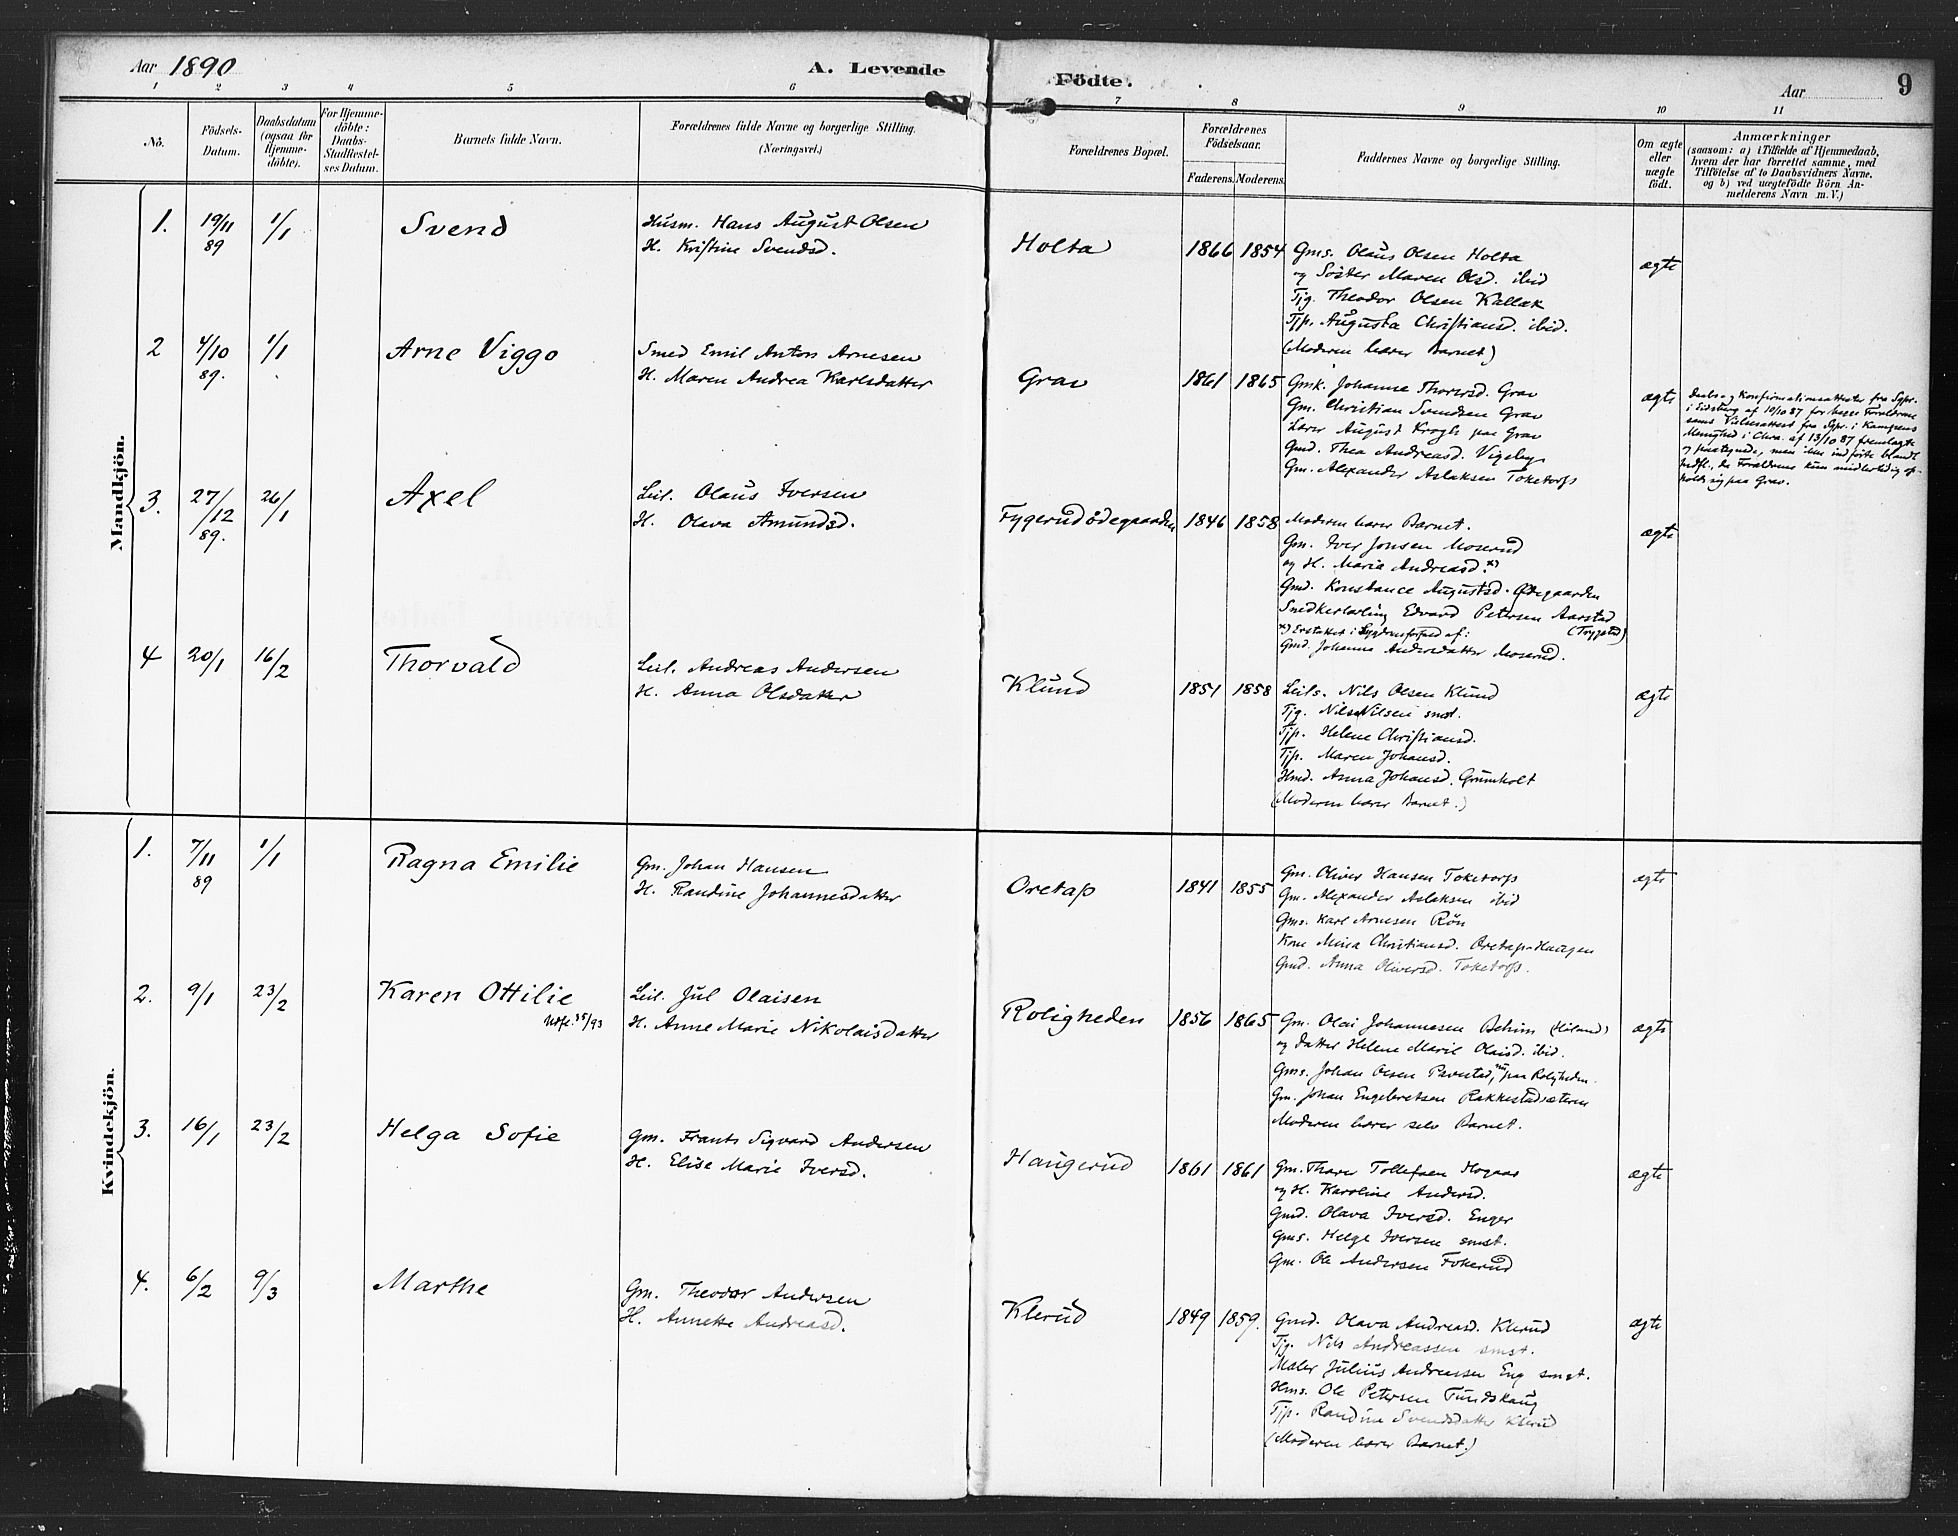 Aar 1890
A. Levende
Födte.
Aar
9
1 2 3 4 5 6 7 8 9 10 11
No.
Födsels-
Datum.
Daabsdatum
(ogsaa for
Hjemme-
döbte).
For Hjemme-
döbte:
Daabs-
Stadfæstel-
ses Datum.
Barnets fulde Navn.
Forældrenes fulde Navne og borgerlige Stilling.
(Næringsvei.)
Forældrenes Bopæl.
Forældrenes
Födselsaar.
Faderens. Moderens.
Faddernes Navne og borgerlige Stilling.
Om ægte
eller
uægte
födt.
Anmærkninger
(saasom: a) i Tilfælde af Hjemmedaab,
hvem der har forrettet samme, med
Tilföielse af to Daabsvidners Navne.
og b) ved uægtefödte Börn An-
melderens Navn m.V.)
Mandkjön.
1. 19/11 89 1/1 Svend
Husm. Hans August Olsen
H. Kristine Svendsd.
Holta 1866 1854
Gms. Olaus Olsen Holta
og Søster Maren Olsd. ibid
Tjg. Theodor Olsen Kallak
Tjp. Augusta Christiansd. ibid.
(Moderen bærer Barnet)
ægte
2 4/10 89. 1/1 Arne Viggo
Smed Emil Anton Arnesen
H. Maren Andrea Karlsdatter
Grav 1861 1865
Gmk. Johanne Thorersd. Grav
Gm. Christian Svendsen Grav
Lærer August Krogh paa Grav
Gmd. Thea Andreasd. Vigeby
Gm. Alexander Aslaksen Toketorp
ægte
Daabs- og Konfirmationsattester fra Sgpr.
i Eidsberg af 10/10 87 for begge Forældrene
sams Vielsesattest fra Sgpr. i Kampens
Menighed i Chra. af 13/10 87 fremlagte
og paategnede, men ikke indførte blandt
Indfl., da Forældrene kun midlertidig op-
holdt sig paa Grav.
3. 27/12 89. 26/1 Axel
Leil. Olaus Iversen
H. Olava Amundsd.
Fygerudødegaarden 1846 1858
Moderen bærer Barnet.
Gm. Iver Jonsen Moserud
og H. Maria Andreasd. x)
Gmd. Konstance Augustsd. Ødegaarden
Snedkerlærling Edvard Petersen Aarstad
(Trygstad)
x) Erstattet i Sygdomsforfald af:
Gmd. Johanne Andersdatter Moserud.
ægte
4 20/1 16/2 Thorvald
Leil. Andreas Andersen
H. Anna Olsdatter
Klund 1851 1858
Leils. Nils Olsen Klund
Tjg. Nils Nilsen smst.
Tjp. Helene Christiansd.
Tjp. Maren Johansd.
Hmd. Anna Johansd. Grumholt
(Moderen bærer Barnet.)
ægte
Kvindekjön.
1. 7/11 89 1/1 Ragna Emilie
Gm. Johan Hansen
H. Randine Johannesdatter
Oretap 1841 1855
Gm. Oliver Hansen Toketorp
Gm. Alexander Aslaksen ibid
Gms. Karl Arnesen Røn
Kone Mina Christiansd. Oretap-Haugen
Gmd. Anna Oliversd. Toketorp.
ægte
2. 9/1 23/2 Karen Ottilie
Leil. Jul Olaisen
H. Anne Marie Nikolaisdatter
Roligheden 1856 1865
Gm. Olai Johannesen
og Datter Helene Marie Olaisd. ibid.
Gms. Johan Olsen
nu paa Roligheden.
Gm. Johan Engebretsen Rakkestadsæteren
Moderen bærer selv Barnet.
ægte
3. 16/1 23/2 Helga Sofie
Gm. Frants Sigvard Andersen
H. Elise Marie Iversd.
Haugerud 1861 1861
Gm. Thorer Tollefsen
og H. Karoline Andersd.
Gmd. Olava Iversd. Enger
Gms. Helge Iversen smst.
Gm. Ole Andersen Fokerud
ægte
4. 6/2 9/3 Marthe
Gm. Theodor Andersen
H. Annette Andreasd.
Klerud 1849 1859.
Gmd. Olava Andreasd. Klerud
Tjg. Nils Andreassen smst.
Maler Julius Andreassen Eng smst.
Hms. Ole Petersen Tundskaug
Tjp. Randine Svendsdatter Klerud
(Moderen bærer Barnet.)
ægte